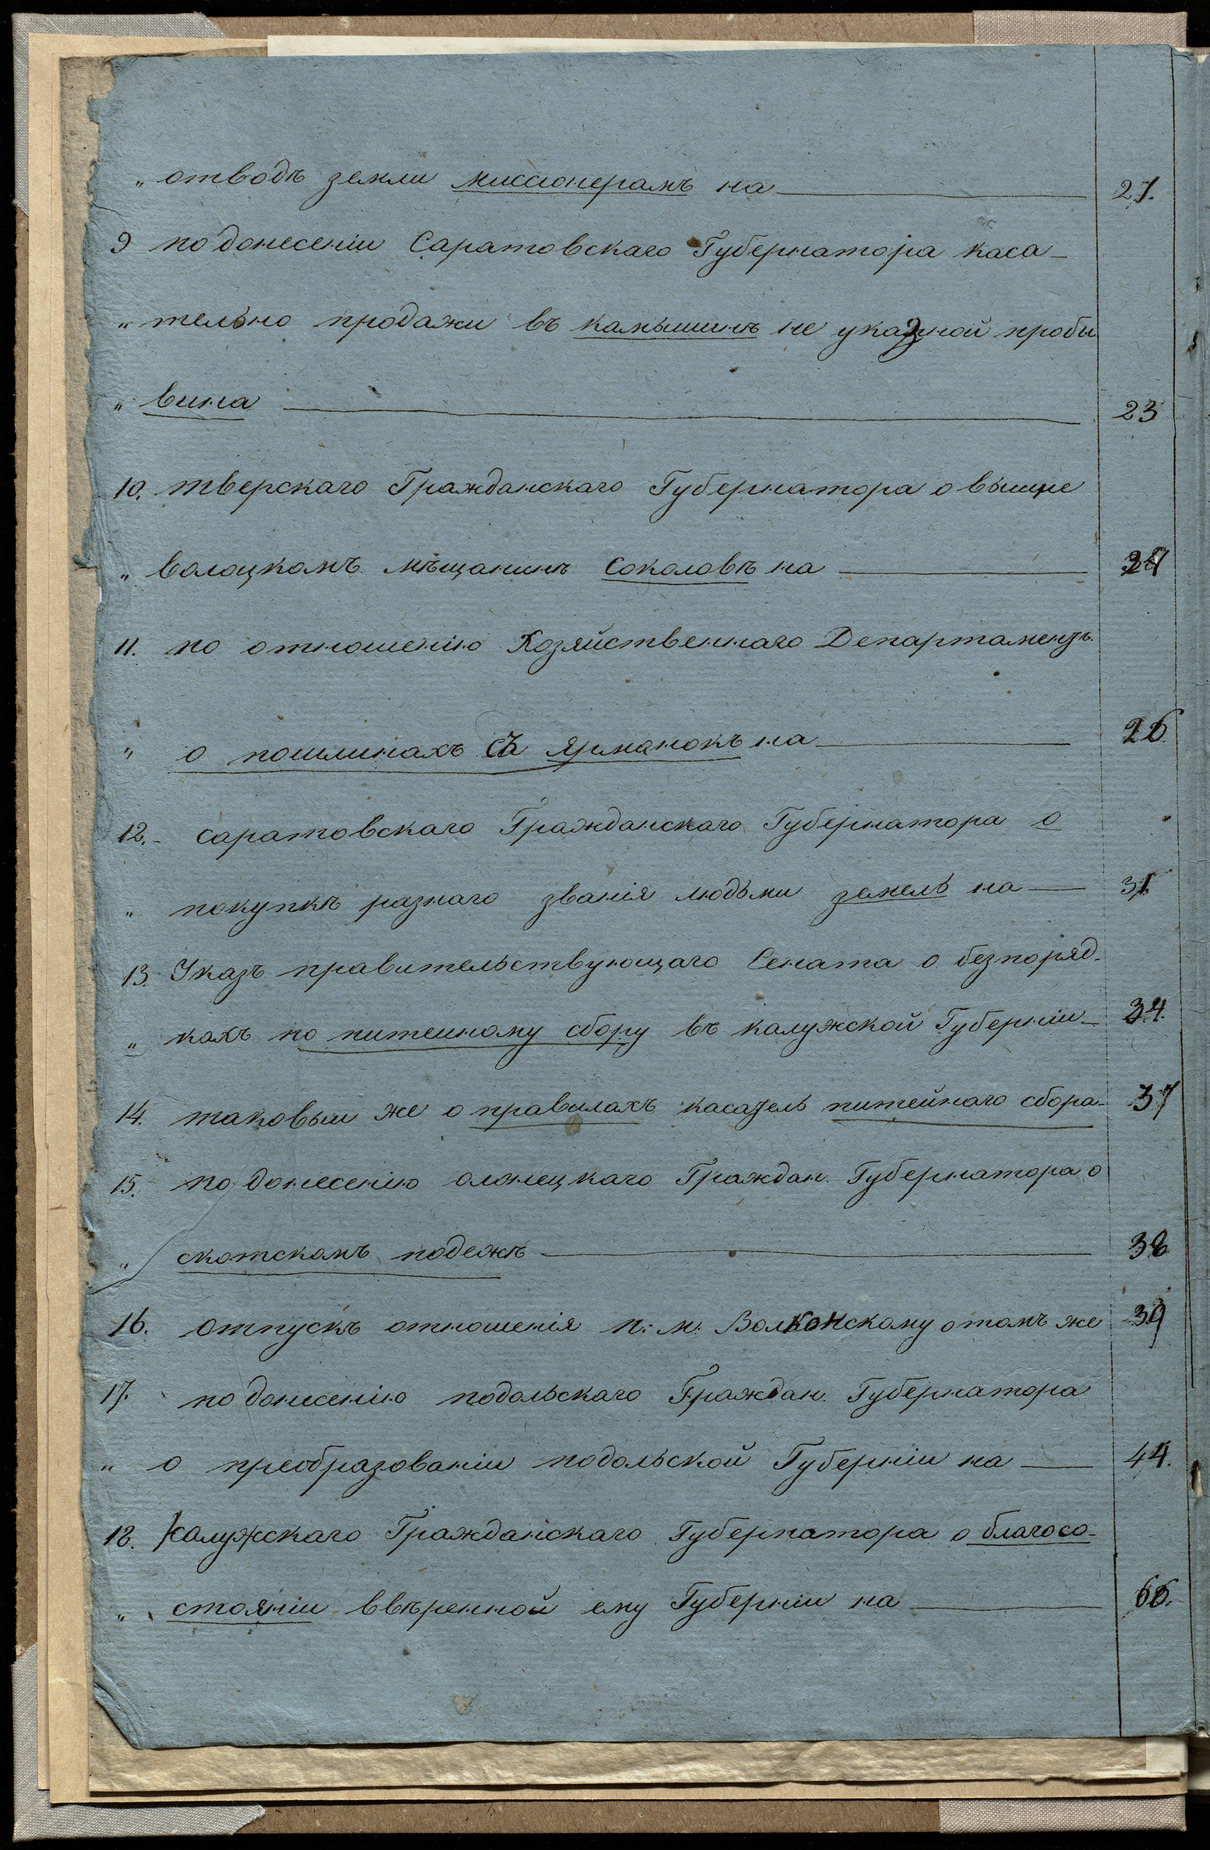 „ отводѣ земли миссіонерамъ на 21.
9 по донесеніи Саратовскаго Губернатора каса-
„ тельно продажи въ камышинѣ не указной пробы
„ вина 23
10. тверскаго Гражданскаго Губернатора о вышне
„ волоцкомъ мѣщанинѣ Соколовѣ на
11. по отношенію Хозяйственнаго Департамента
„ о пошлинахъ съ ярманокъ на 26
12. саратовскаго Гражданскаго Губернатора о
„ покупкѣ разнаго званія людьми земель на 31
13. Указъ правительствующаго Сената о безпоряд-
„ кахъ по питейному сбору въ калужской Губерніи 34.
14. таковый же о правилахъ касатель питейнаго сбора 37
15. по донесенію олонецкаго Граждан. Губернатора о
„ скотскомъ падежѣ 38
16. отпускъ отношенія п: м: Волконскому о томъ же 39
17. по донесенію подольскаго Граждан. Губернатора
„ о преобразованіи подольской Губерніи на 44.
18. Калужскаго Гражданскаго Губернатора о благосо-
„ стояніи ввѣренной ему Губерніи на 66.